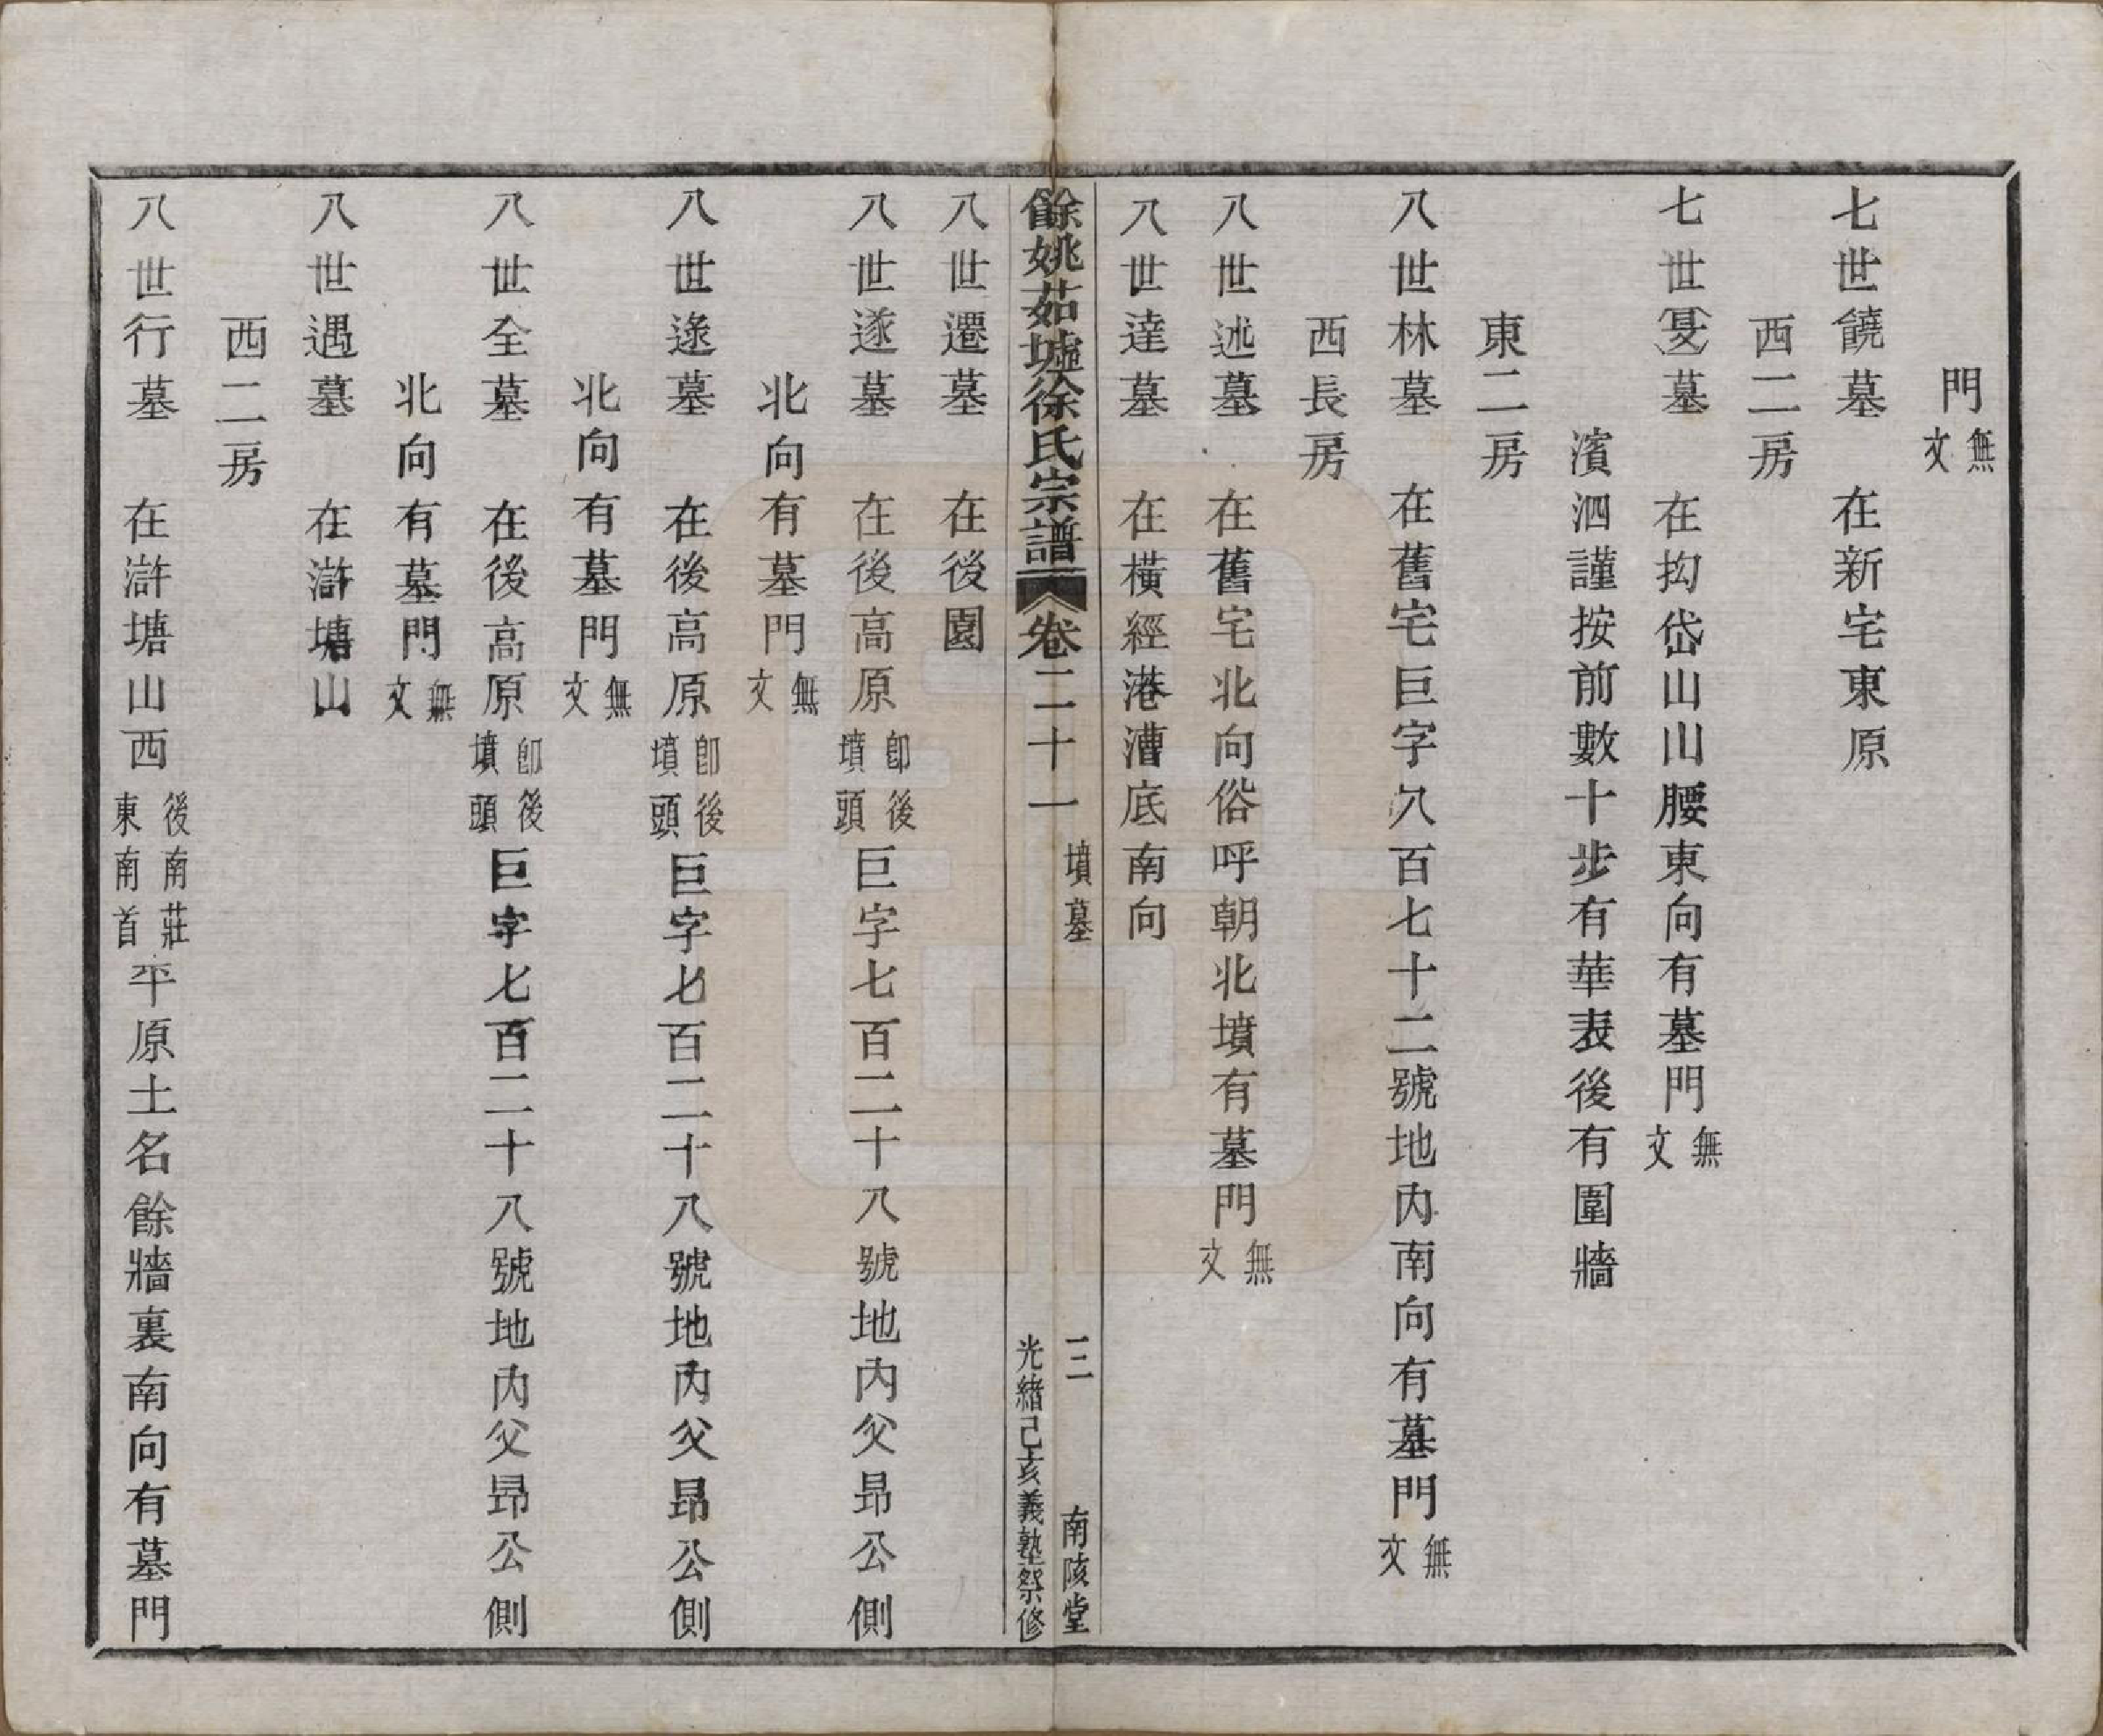 門無文
七世饒墓　在新宅東原
西二房
七世㝁墓　在抝岱山山腰東向有墓門無文
濱泗謹按前數十步有華表後有圍牆
東二房
八世林墓　在舊宅巨字八百七十二號地內南向有墓門無文
西長房
八世述墓　在舊宅北向俗呼朝北墳有墓門無文
八世達墓　在橫經港漕底南向
餘姚茹墟徐氏宗譜　卷二十一　墳墓　三　南陔堂
光緖己亥義塾祭修
八世遷墓　在後園
八世遂墓　在後高原卽後墳頭巨字七百二十八號地內父昻公側
北向有墓門無文
八世逺墓　在後高原卽後墳頭巨字七百二十八號地內父昻公側
北向有墓門無文
八世全墓　在後高原卽後墳頭巨字七百二十八號地內父昻公側
北向有墓門無文
八世遇墓　在滸塘山
西二房
八世行墓　在滸塘山西後南莊東南首平原土名餘牆裏南向有墓門